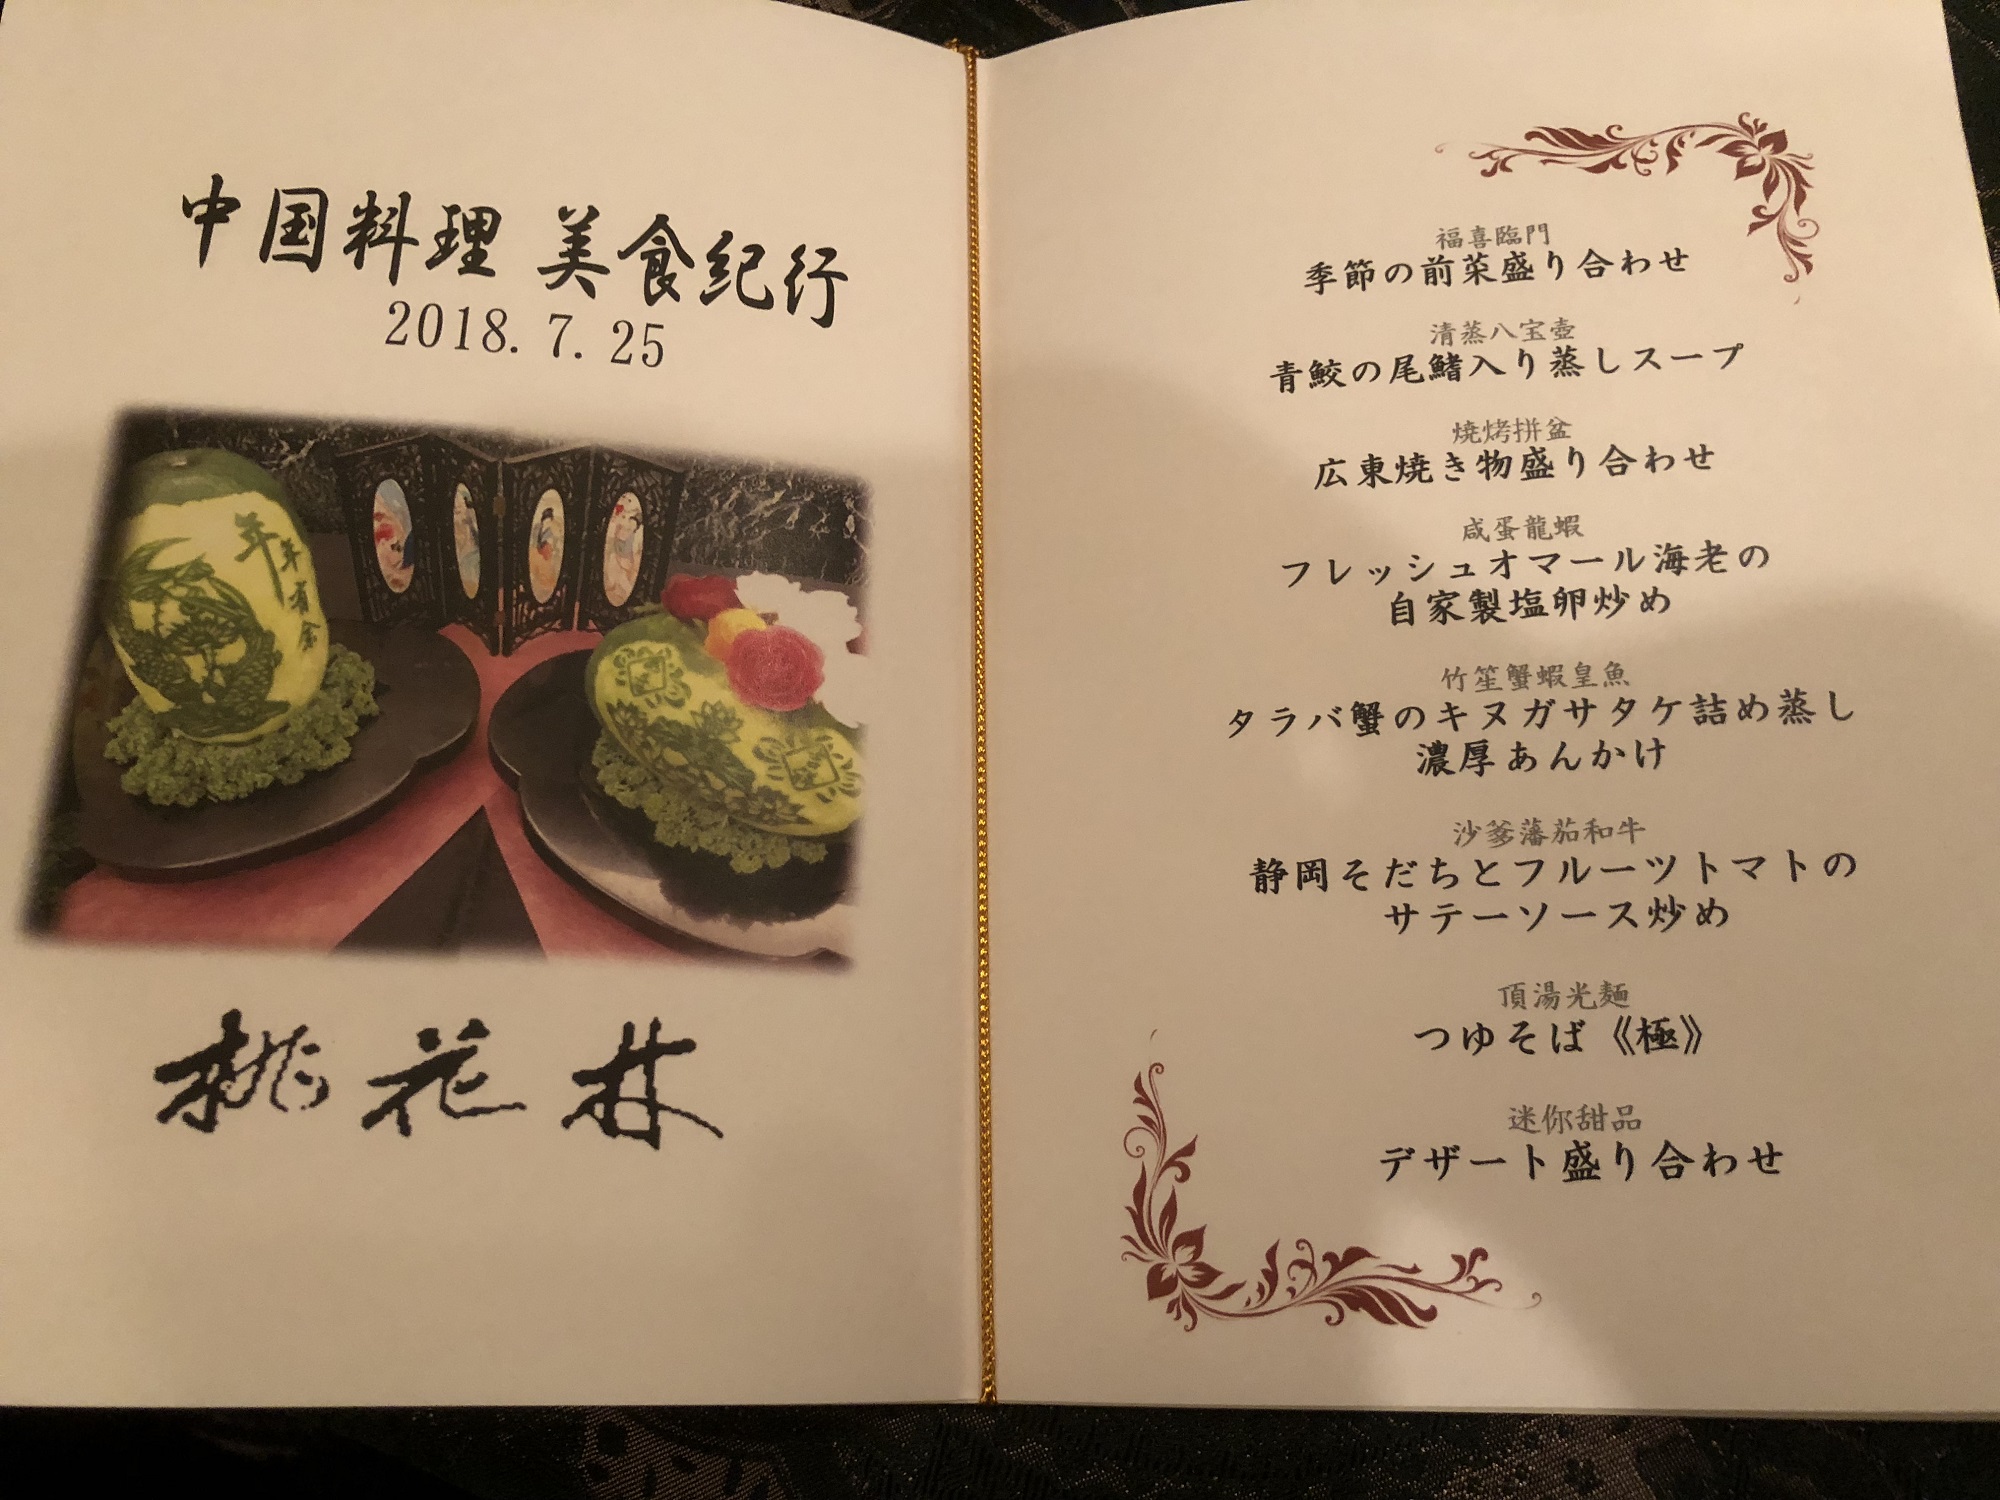 中国料理 美食紀行
2018. 7. 25
年年有余
桃花林
福喜臨門
季節の前菜盛り合わせ
清蒸八宝壺
青鮫の尾鰭入り蒸しスープ
焼烤拼盆
広東焼き物盛り合わせ
咸蛋龍蝦
フレッシュオマール海老の
自家製塩卵炒め
竹笙蟹蝦皇魚
タラバ蟹のキヌガサタケ詰め蒸し
濃厚あんかけ
沙爹蕃茄和牛
静岡そだちとフルーツトマトの
サテーソース炒め
頂湯光麺
つゆそば《極》
迷你甜品
デザート盛り合わせ